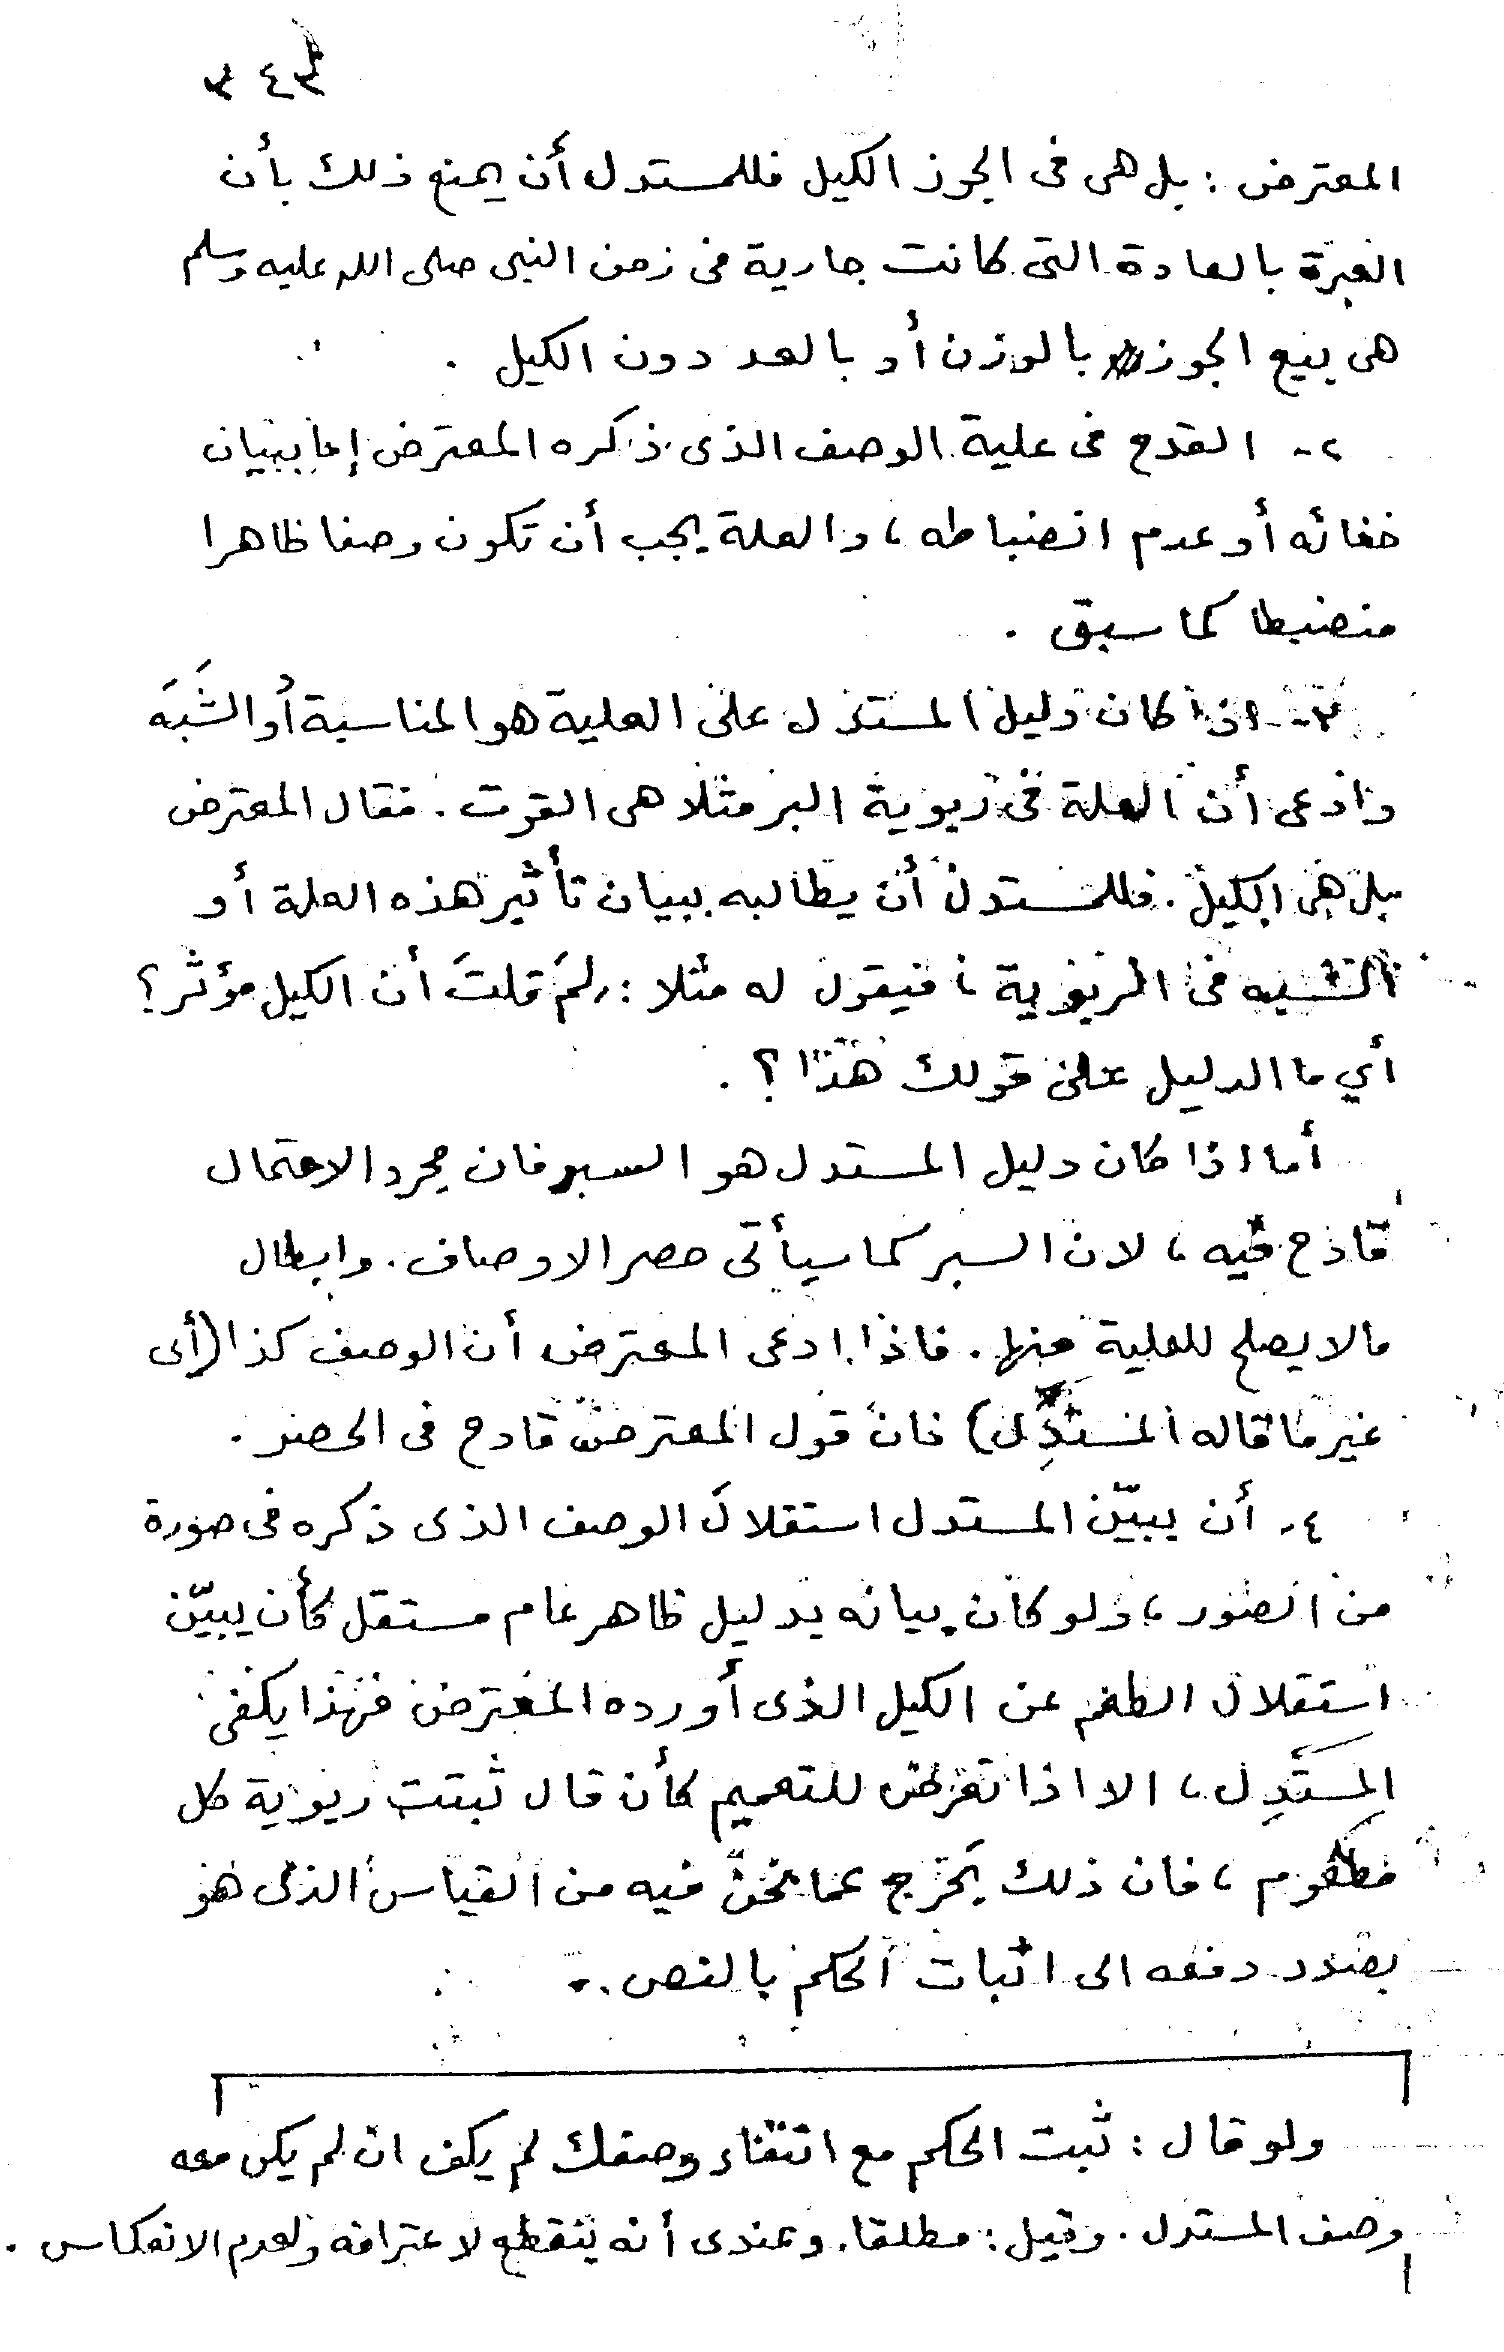 ٣٤٣
المعترض : بل هى فى الجوز الكيل فللمستدل أن يمنع ذلك بأن
العبرة بالعادة التى كانت جارية فى زمن النبى صلى الله عليه وسلم
هى بيع الجوز بالوزن أو بالعد دون الكيل .
٢- القدح فى علية الوصف الذى ذكره المعترض إما ببيان
خفائه أو عدم انضباطه ، والعلة يجب أن تكون وصفا ظاهرا
منضبطا كما سبق .
٣- اذا كان دليل المستدل على العلية هو المناسبة أو الشَبَه
وادعى أن العلة فى ربوية البر مثلا هى القوت . فقال المعترض
بل هى الكيل . فللمستدل أن يطالبه ببيان تأثير هذه العلة أو
الشبه فى الربوية ، فيقول له مثلا : لِمَ قلتَ أن الكيل مؤثر ؟
أي ما الدليل على قولك هذا ؟ .
أما اذا كان دليل المستدل هو السبر فان مجرد الاحتمال
قادح فيه ، لان السبر كما سيأتى حصر الاوصاف . وابطال
مالا يصلح للعلية منها . فاذا ادعى المعترض أن الوصف كذا (أى
غير ما قاله المستدِل) فان قول المعترض قادح فى الحصر .
٤- أن يبيّن المستدل استقلال الوصف الذى ذكره فى صورة
من الصور ، ولو كان بيانه بدليل ظاهر عام مستقل كأن يبيّن
استقلال الطعم عن الكيل الذى أورده المعترض فهذا يكفى
المستدِل ، الا اذا تعرض للتعميم كأن قال ثبتت ربوية كل
مطعوم ، فان ذلك يخرج عما نحن فيه من القياس الذى هو
بصدد دفعه الى اثبات الحكم بالنص .
ولو قال : ثبت الحكم مع انتفاء وصفك لم يكف ان لم يكن معه
وصف المستدل . وقيل : مطلقا . وعندى أنه ينقطع لاعترافه ولعدم الانعكاس .